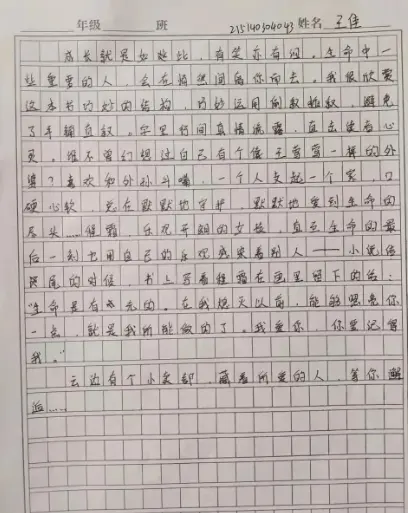 年级 班 215140504043 姓名 王佳
成长就是如此，有笑亦有泪。生命中一
些重要的人，会在猝然间离你而去。我很欣赏
这本书巧妙的结构，巧妙运用倒叙插叙，避免
了平铺直叙。字里行间真情流露，直击读者心
灵。谁不曾幻想过自己有个像王莺莺一样的外
婆？喜欢和外孙斗嘴，一个人支起一个家，口
硬心软，总在默默地守护，默默地爱到生命的
尽头……程霜，乐观开朗的女孩，直至生命的最
后一刻也用自己的乐观感染着别人——小说结
尾的时候，书上写着程霜在画里留下的话：
“生命是有光的。在我熄灭以前，能够照亮你
一点，就是我所能做的了。我爱你，你要记得
我。”
云边有个小卖部，藏着所爱的人，等你邂
逅……